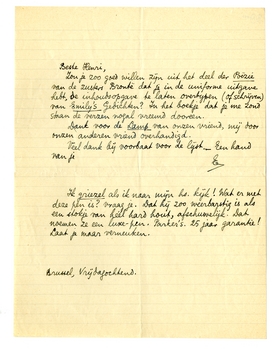 Beste Henri,
Zou je zoo goed willen zijn uit het deel der Poëzie
van de zusters Brontë dat je in de uniforme uitgave
hebt, de inhoudsopgave te laten overtypen (of schrijven)
van Emily's Gedichten? In het boekje dat je me zond
staan de verzen nogal vreemd dooreen.
Dank voor de Kemp van onzen vriend, mij door
onzen anderen vriend overhandigd.
Veel dank bij voorbaat voor de lijst. — Een hand
van je
E
Ik griezel als ik naar mijn hs. kijk! Wat er met
deze pen is? vraag je. Dat hij zoo weerbarstig is als
een stokje van heel hard hout, afschuwelijk. Dat
noemen ze een luxe-pen. Parker's. 25 jaar garantie!
Laat je maar verneuken.
Brussel, Vrijdagochtend.